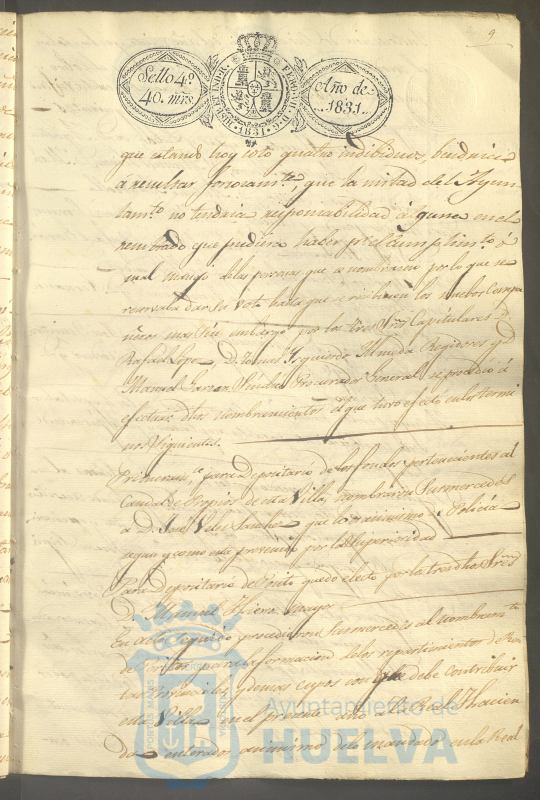 9
Sello 4º
40. mrs
HISP. ET IND. R. FERD. VII. D. G. 1831
Año de
1831.
que estando hoy solo quatro individuos, vendria
á resultar forosamte, que la mitad del Ayun
tamto no tendria responsabilidad alguna en el
resultado que pudiera haber pr el cumplimto ó
mal manejo de las personas que se nombrasen por lo que se
reservaba dar su voto hasta que se reciviesen los nuebos Compa
ñeros mas sin embargo por los tres Sres Capitulares D.
Rafael Lopez, D. Tomas Izquierdo Almeda Regidores y D.
Manuel Garzon Sindico Procurador General se procedió á
efectuar dhos nombramientos el que tuvo efecto en los termi
nos siguientes.
Primeramte para Depositario de los fondos pertenecientes al
Caudal de Propios de esta Villa, nombraron sus mercedes
a D. José Velez Sanchez que lo es asimismo de Policia
segun y como esta prevenido por la Superioridad
Para Depositario de Posito quedó electo por los tres dhos Sres
D. Manuel
En acto seguido procedieron sus mercedes al nombramto
de para la formacion de los repartimientos de Ren
tas Provinciales y demas cupos con que debe contribuir
esta Villa en el presente año á la Real Hacien
da enterados asimismo de lo mandado en la Real
Ayuntamiento de
HUELVA